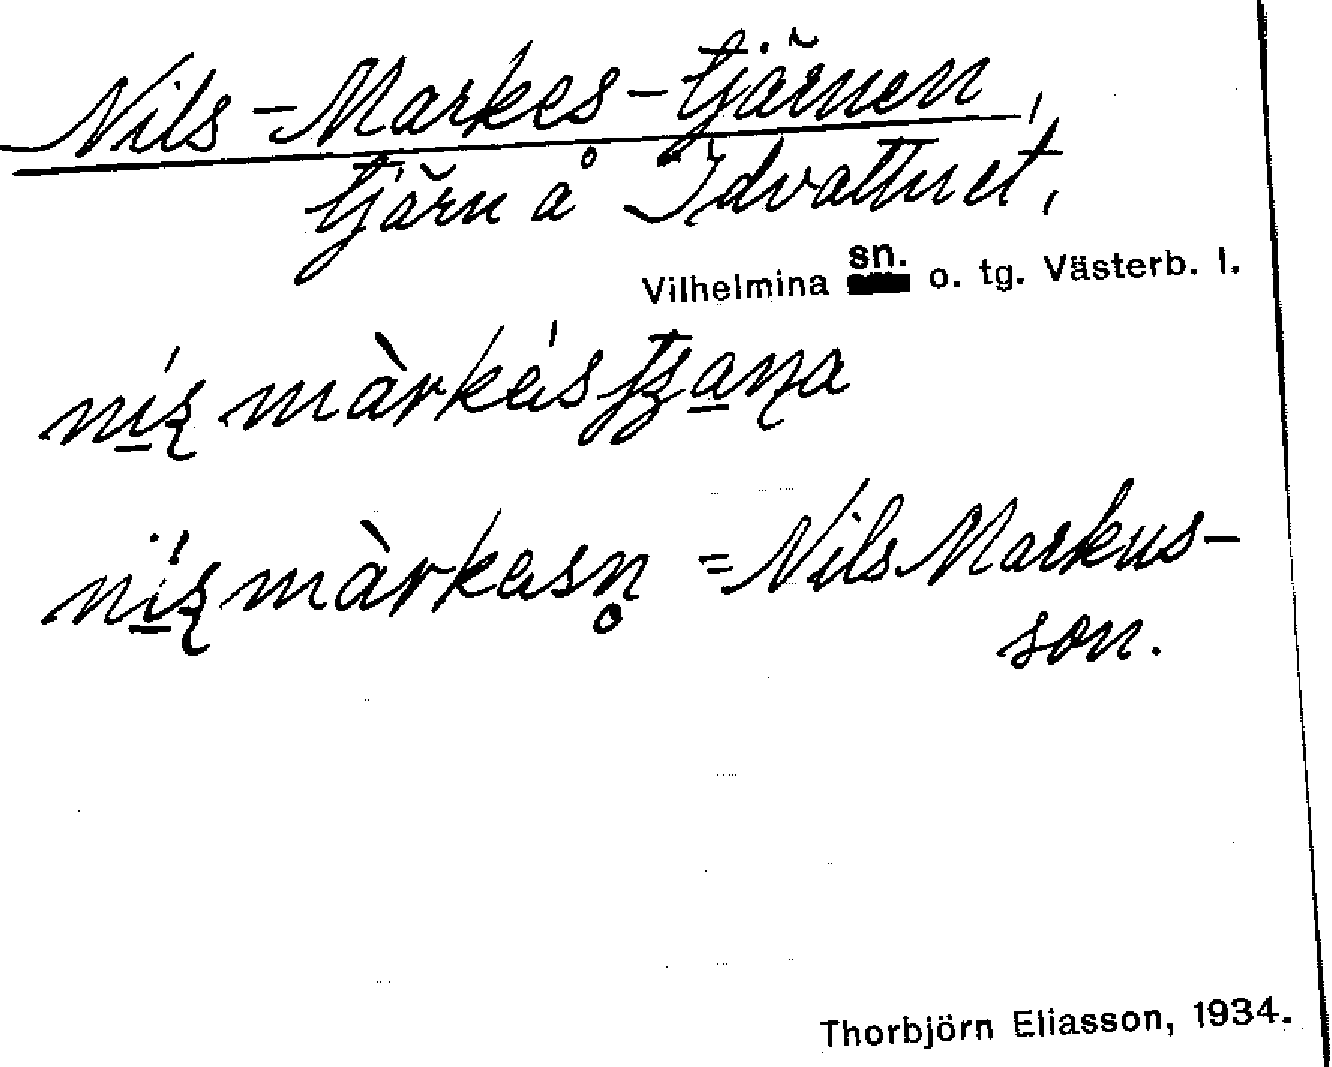 Nils-Markes-tjärnen,
tjärn å Idvattnet,
Vilhelmina sn. o. tg. Västerb. l.
màrkas
màrkasn̥ = Nils Markus-
son.
Thorbjörn Eliasson, 1934.